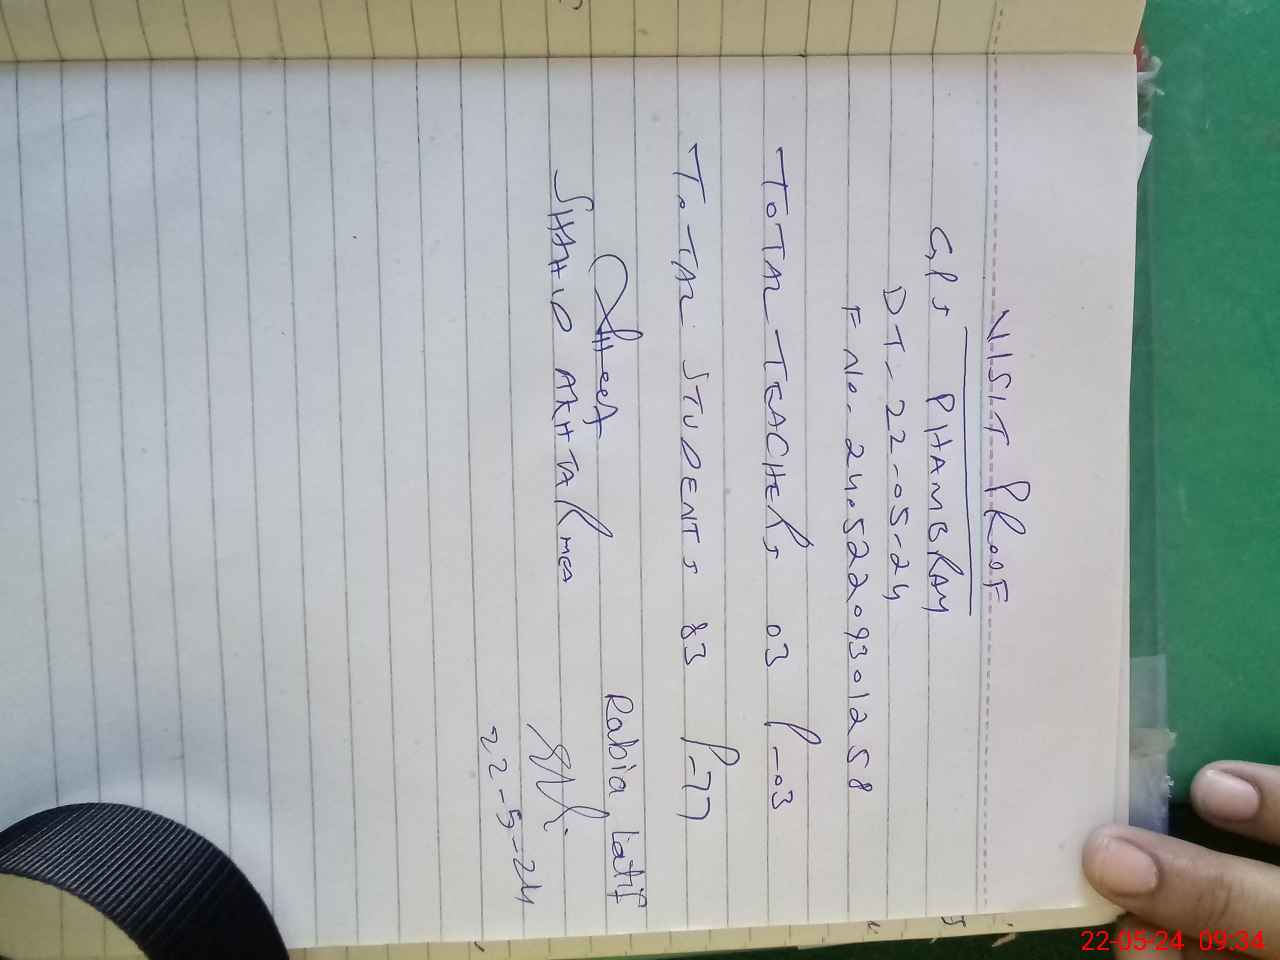 VISIT PROOF
GPS PHAMBRAY
DT- 22-05-24
F No. 24052209301258
TOTAL TEACHERS 03 P-03
TOTAL STUDENTS 83 P-77
SHAHID AKHTAR MEA
Rabia Latif
22-5-24
22-05-24 09:34